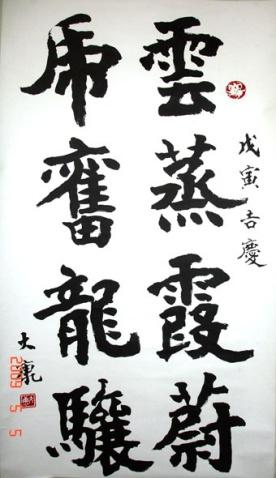 戊寅吉慶
雲蒸霞蔚
虎奮龍驤
大
2009 5 5